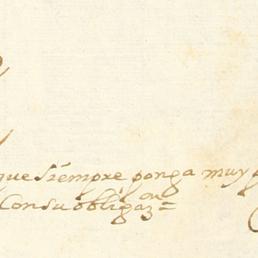 que siempre ponga muy
Con su obligaz.on =